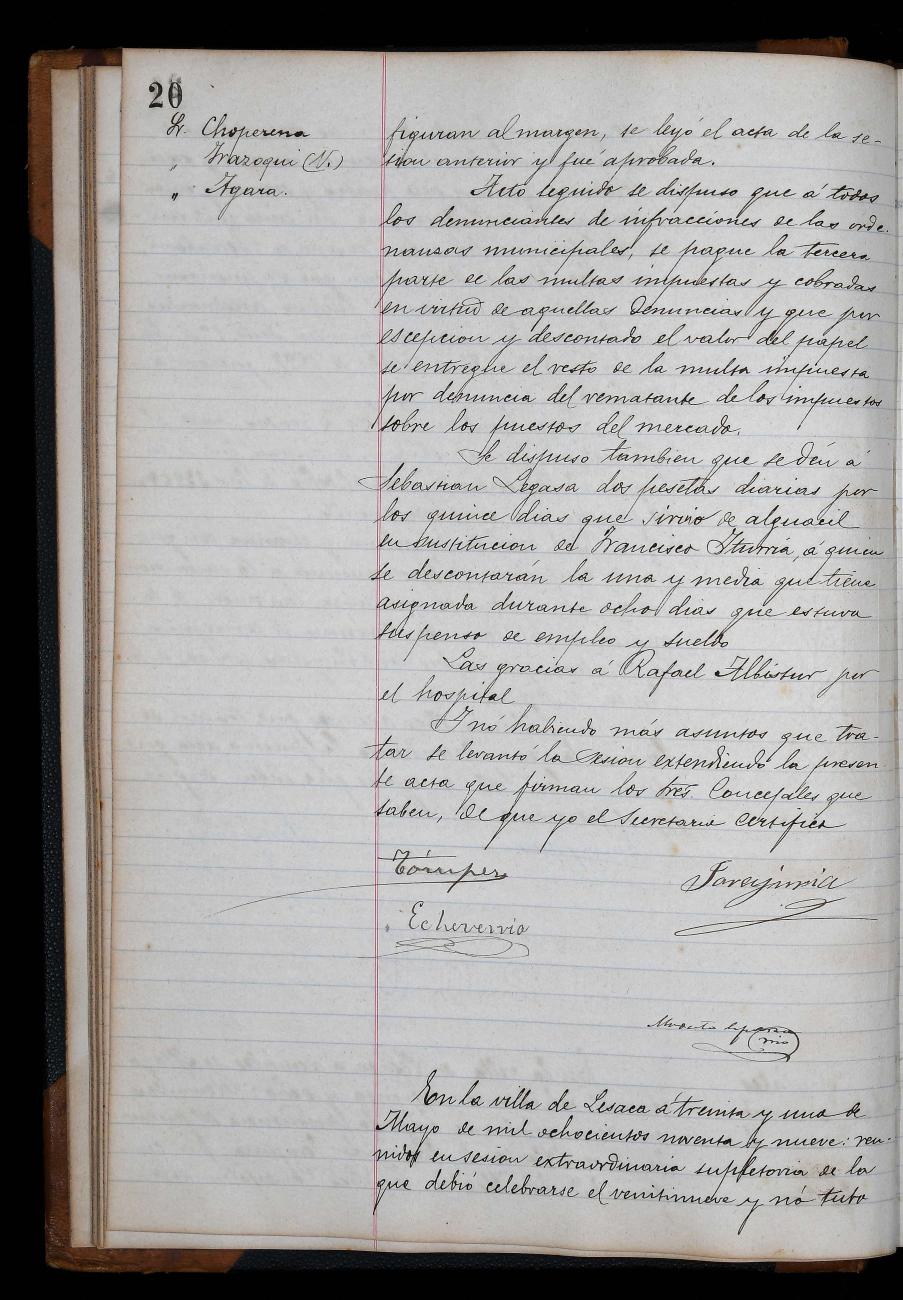 20
Sr. Choperena
" Irazoqui (N.)
" Igara.
figuran al margen, se leyó el acta de la se-
sion anterior y fué aprobada.
Acto seguido se dispuso que á todos
los denunciantes de infracciones de las orde-
nanzas municipales, se pague la tercera
parte de las multas impuestas y cobradas
en virtud de aquellas denuncias y que por
escepcion y descontado el valor del papel
se entregue el resto de la multa impuesta
por denuncia del rematante de los impuestos
sobre los puestos del mercado.
Se dispuso tambien que se dén á
Sebastian Legasa dos pesetas diarias por
los quince dias que sirvió de alguacil
en sustitucion de Francisco Iturria, á quien
se descontarán la una y media que tiene
asignada durante ocho dias que estuvo
suspenso de empleo y sueldo
Las gracias á Rafael Albistur por
el hospital
I nó habiendo más asuntos que tra-
tar se levantó la sesion extendiendo la presen-
te acta que firman los Sres. Concejales que
saben, de que yo el Secretario certifico
Echeverria
En la villa de Lesaca á treinta y uno de
Mayo de mil ochocientos noventa y nueve: reu-
nidos en sesion extraordinaria supletoria de la
que debió celebrarse el veintinueve y nó tubo